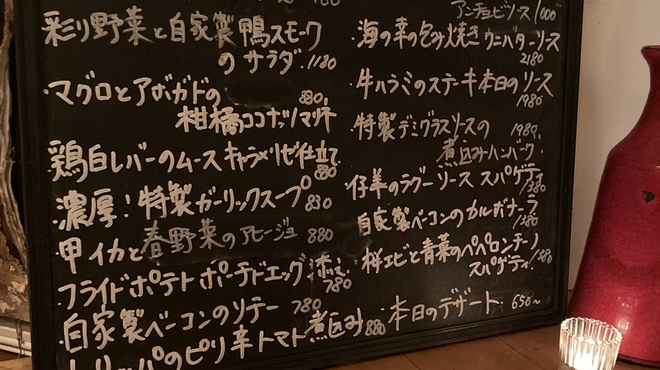 彩り野菜と自家製鴨スモーク
のサラダ 1180
マグロとアボガドの 880,
柑橘ココナッツマリネ
鶏白レバーのムース キャラメリゼ仕立て
880
濃厚!特製ガーリックスープ 830
甲イカと春野菜のアヒージョ 880
フライドポテト ポーチドエッグ添え
780
自家製ベーコンのソテー 780
トリッパのピリ辛トマト煮込み 880
アンチョビソース 1000
海の幸の包み焼き ウニバターソース
2180
牛ハラミのステーキ 本日のソース
1980
特製デミグラスソースの 1980,
煮込みハンバーグ
仔羊のラグーソース スパゲティ
1380
自家製ベーコンのカルボナーラ
1380
桜エビと青菜のペペロンチーノ
スパゲティ 1380
本日のデザート 650~